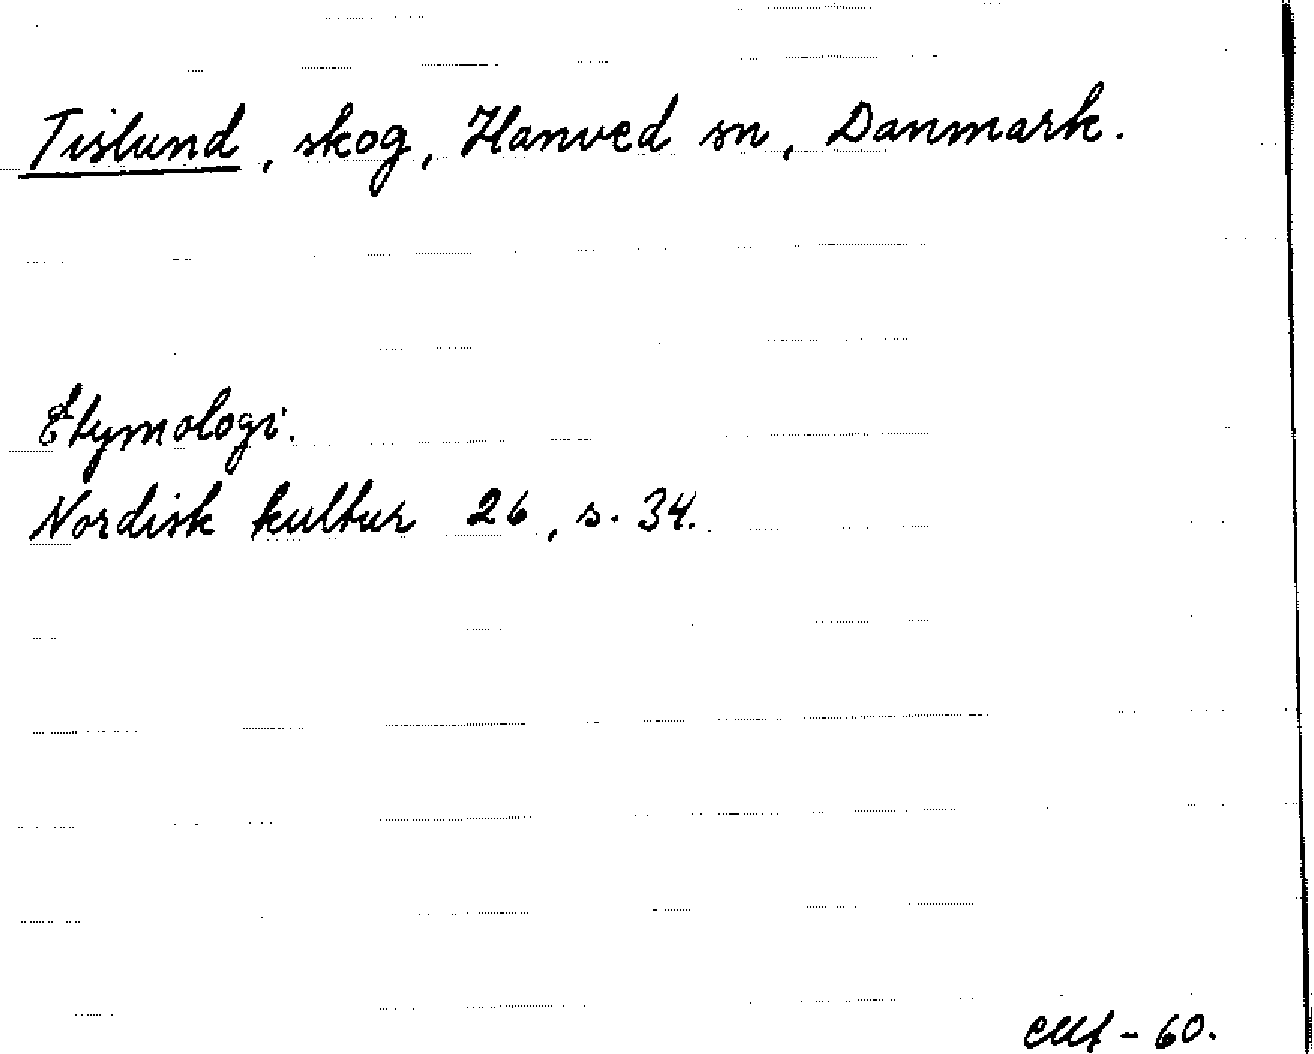 Tislund, skog, Hanved sn, Danmark.
Etymologi.
Nordisk kultur 26, s. 34.
- 60.